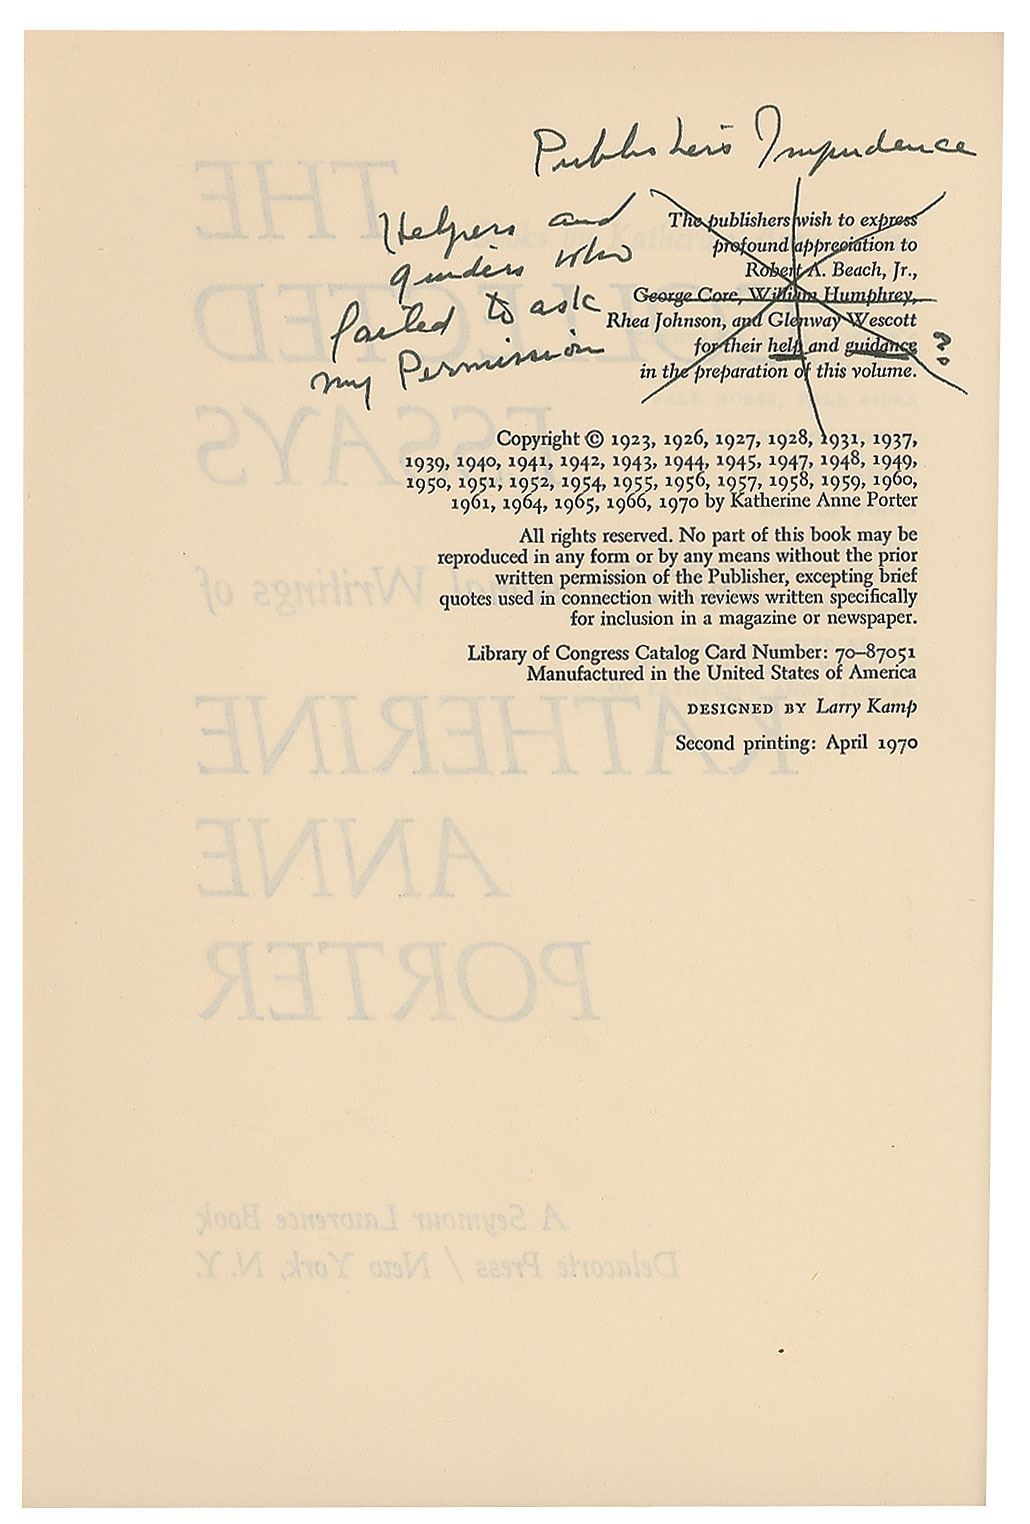 Publisher's Impudence
Helpers and
guiders who
failed to ask
my Permission
The publishers wish to express
profound appreciation to
Robert A. Beach, Jr.,
George Core, William Humphrey,
Rhea Johnson, and Glenway Wescott
for their help and guidance
??
in the preparation of this volume.
Copyright © 1923, 1926, 1927, 1928, 1931, 1937,
1939, 1940, 1941, 1942, 1943, 1944, 1945, 1947, 1948, 1949,
1950, 1951, 1952, 1954, 1955, 1956, 1957, 1958, 1959, 1960,
1961, 1964, 1965, 1966, 1970 by Katherine Anne Porter
All rights reserved. No part of this book may be
reproduced in any form or by any means without the prior
written permission of the Publisher, excepting brief
quotes used in connection with reviews written specifically
for inclusion in a magazine or newspaper.
Library of Congress Catalog Card Number: 70–87051
Manufactured in the United States of America
DESIGNED BY Larry Kamp
Second printing: April 1970
THE
COLLECTED
ESSAYS
and Occasional Writings of
KATHERINE
ANNE
PORTER
A Seymour Lawrence Book
Delacorte Press / New York, N.Y.